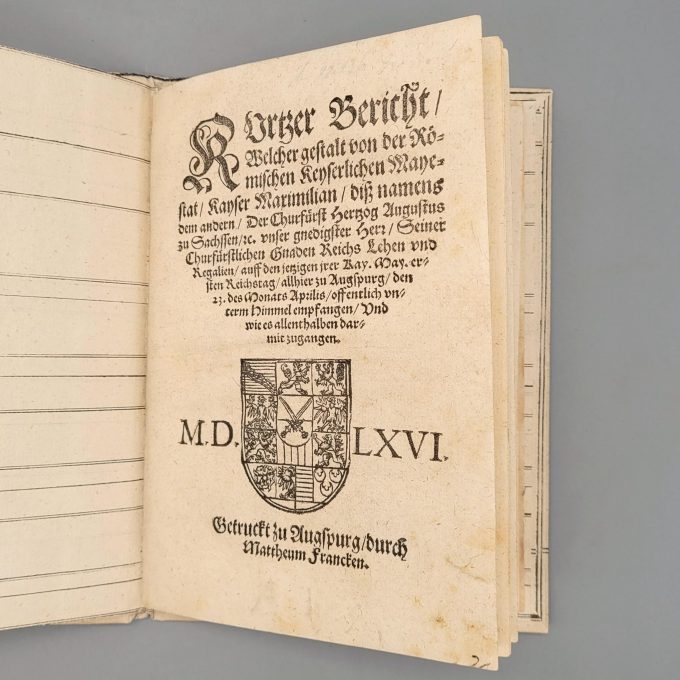 KUrtzer Bericht/
Welcher gestalt von der Rö-
mischen Keyserlichen Maye-
stat/ Kayser Maximilian/ diß namens
dem andern/ Der Churfürst Hertzog Augustus
zu Sachssen/ꝛc. vnser gnedigster Herr/ Seiner
Churfürstlichen Gnaden Reichs Lehen vnd
Regalien/ auff den jetzigen jrer Kay. May. er-
sten Reichstag/ allhier zu Augspurg/ den
23. des Monats Aprilis/ offentlich vn-
term Himmel empfangen/ Vnd
wie es allenthalben dar-
mit zugangen.
M.D. LXVI.
Getruckt zu Augspurg/durch
Mattheum Francken.